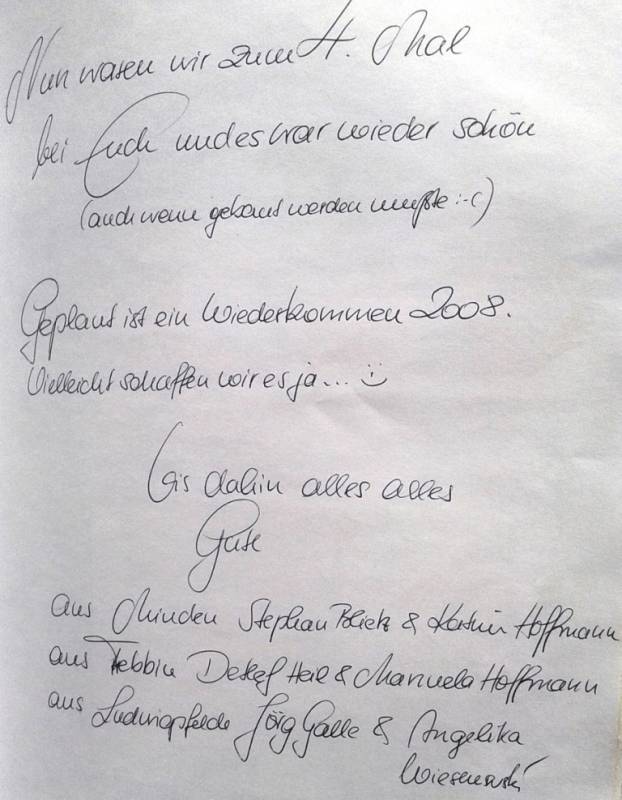 Nun waren wir zum 4. Mal
bei Euch und es war wieder schön
(auch wenn gebaut werden mußte :-()
Geplant ist ein Wiederkommen 2008.
Vielleicht schaffen wir es ja... :)
Bis dahin alles alles
Gute
aus Minden Stephan & Katrin Hoffmann
aus Trebbin Detlef & Manuela Hoffmann
aus Ludwigsfelde Jörg Galle & Angelika